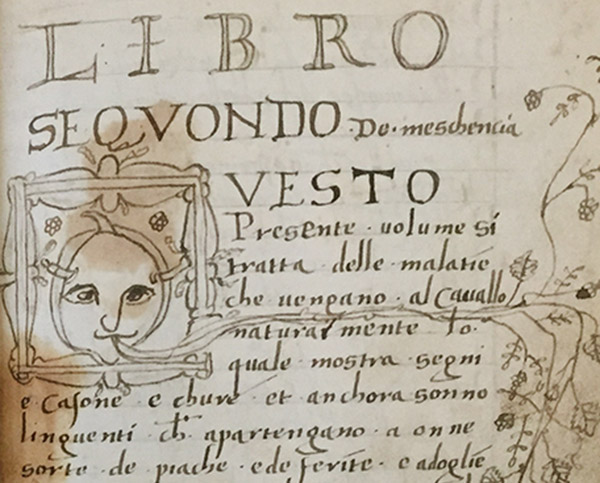 LIBRO
SEQVONDO · De · meschencia
QVESTO
Presente · uolume si
tratta · delle · malatie
che uengano · al Cauallo
naturalmente · lo ·
quale · mostra · segni
e Casone · e chure · et anchora sonno
linguenti · ch · apartengano · a onne
sorte · de · piache · e de ferite · e adoglie